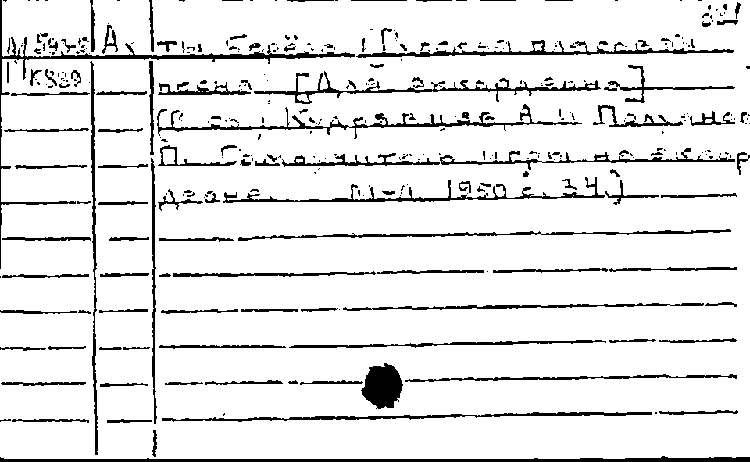 М 593-8 Ах ты, берёза! [Русская плясовая
К889 песня]. [Для аккордеона]
(В сб.: Кудрявцев, А. и Полуянов
П. Самоучитель игры на аккор-
деоне. М-Л. 1950 с. 34.)